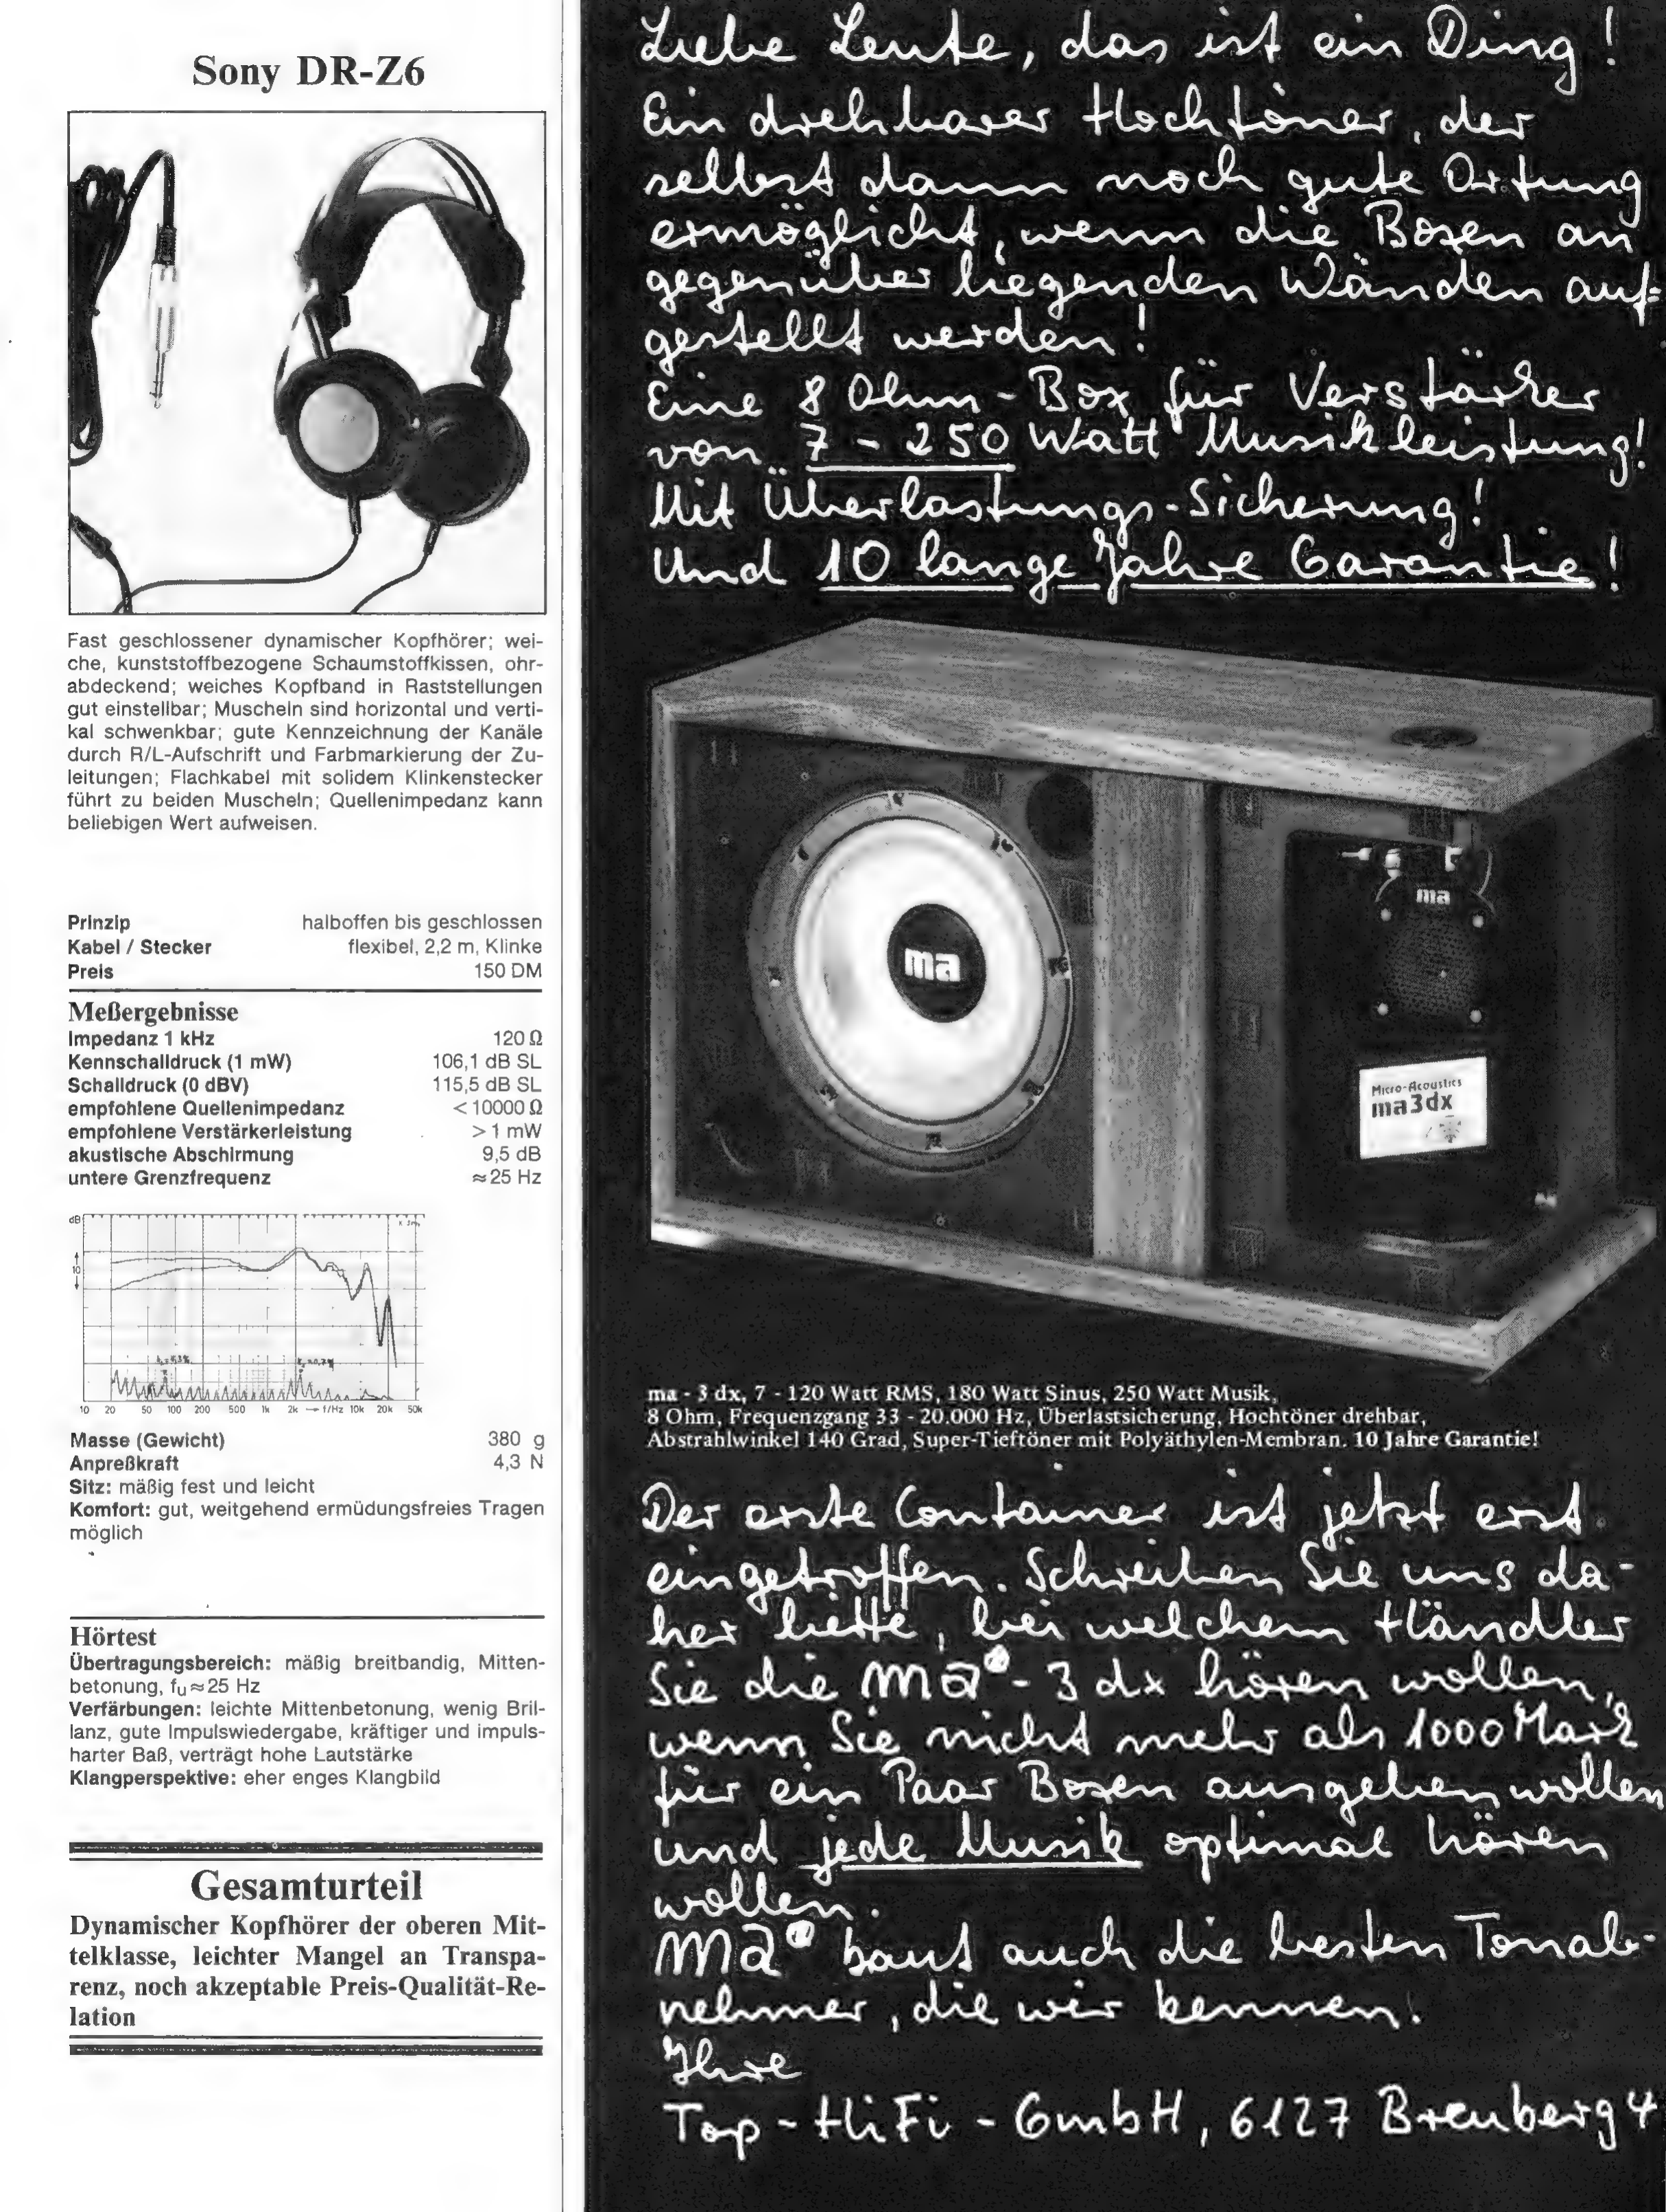 Sony DR-Z6
Fast geschlossener dynamischer Kopfhörer; wei-
che, kunststoffbezogene Schaumstoffkissen, ohr-
abdeckend; weiches Kopfband in Raststellungen
gut einstellbar; Muscheln sind horizontal und verti-
kal schwenkbar; gute Kennzeichnung der Kanäle
durch R/L-Aufschrift und Farbmarkierung der Zu-
leitungen; Flachkabel mit solidem Klinkenstecker
führt zu beiden Muscheln; Quellenimpedanz kann
beliebigen Wert aufweisen.
Prinzip halboffen bis geschlossen
Kabel / Stecker flexibel, 2,2 m, Klinke
Preis 150 DM
Meßergebnisse
Impedanz 1 kHz 120 Ω
Kennschalldruck (1 mW) 106,1 dB SL
Schalldruck (0 dBV) 115,5 dB SL
empfohlene Quellenimpedanz < 10000 Ω
empfohlene Verstärkerleistung > 1 mW
akustische Abschirmung 9,5 dB
untere Grenzfrequenz ≈ 25 Hz
dB
10
10 20 50 100 200 500 1k 2k → f/Hz 10k 20k 50k
Masse (Gewicht) 380 g
Anpreßkraft 4,3 N
Sitz: mäßig fest und leicht
Komfort: gut, weitgehend ermüdungsfreies Tragen
möglich
Hörtest
Übertragungsbereich: mäßig breitbandig, Mitten-
betonung, fu ≈ 25 Hz
Verfärbungen: leichte Mittenbetonung, wenig Bril-
lanz, gute Impulswiedergabe, kräftiger und impuls-
harter Baß, verträgt hohe Lautstärke
Klangperspektive: eher enges Klangbild
Gesamturteil
Dynamischer Kopfhörer der oberen Mit-
telklasse, leichter Mangel an Transpa-
renz, noch akzeptable Preis-Qualität-Re-
lation
Liebe Leute, das ist ein Ding!
Ein drehbarer Hochtöner, der
selbst dann noch gute Ortung
ermöglicht, wenn die Boxen an
gegenüber liegenden Wänden auf=
gestellt werden!
Eine 8 Ohm-Box für Verstärker
von 7 - 250 Watt Musikleistung!
Mit Überlastungs-Sicherung!
Und 10 lange Jahre Garantie!
ma
ma
Micro-Acoustics
ma3dx
ma - 3 dx, 7 - 120 Watt RMS, 180 Watt Sinus, 250 Watt Musik,
8 Ohm, Frequenzgang 33 - 20.000 Hz, Überlastsicherung, Hochtöner drehbar,
Abstrahlwinkel 140 Grad, Super-Tieftöner mit Polyäthylen-Membran. 10 Jahre Garantie!
Der erste Container ist jetzt erst
eingetroffen. Schreiben Sie uns da-
her bitte, bei welchem Händler
Sie die ma - 3 dx hören wollen,
wenn Sie nicht mehr als 1000 Mark
für ein Paar Boxen ausgeben wollen
und jede Musik optimal hören
wollen.
ma baut auch die besten Tonab-
nehmer, die wir kennen.
Ihre
Top-HiFi-GmbH, 6127 Breuberg 4